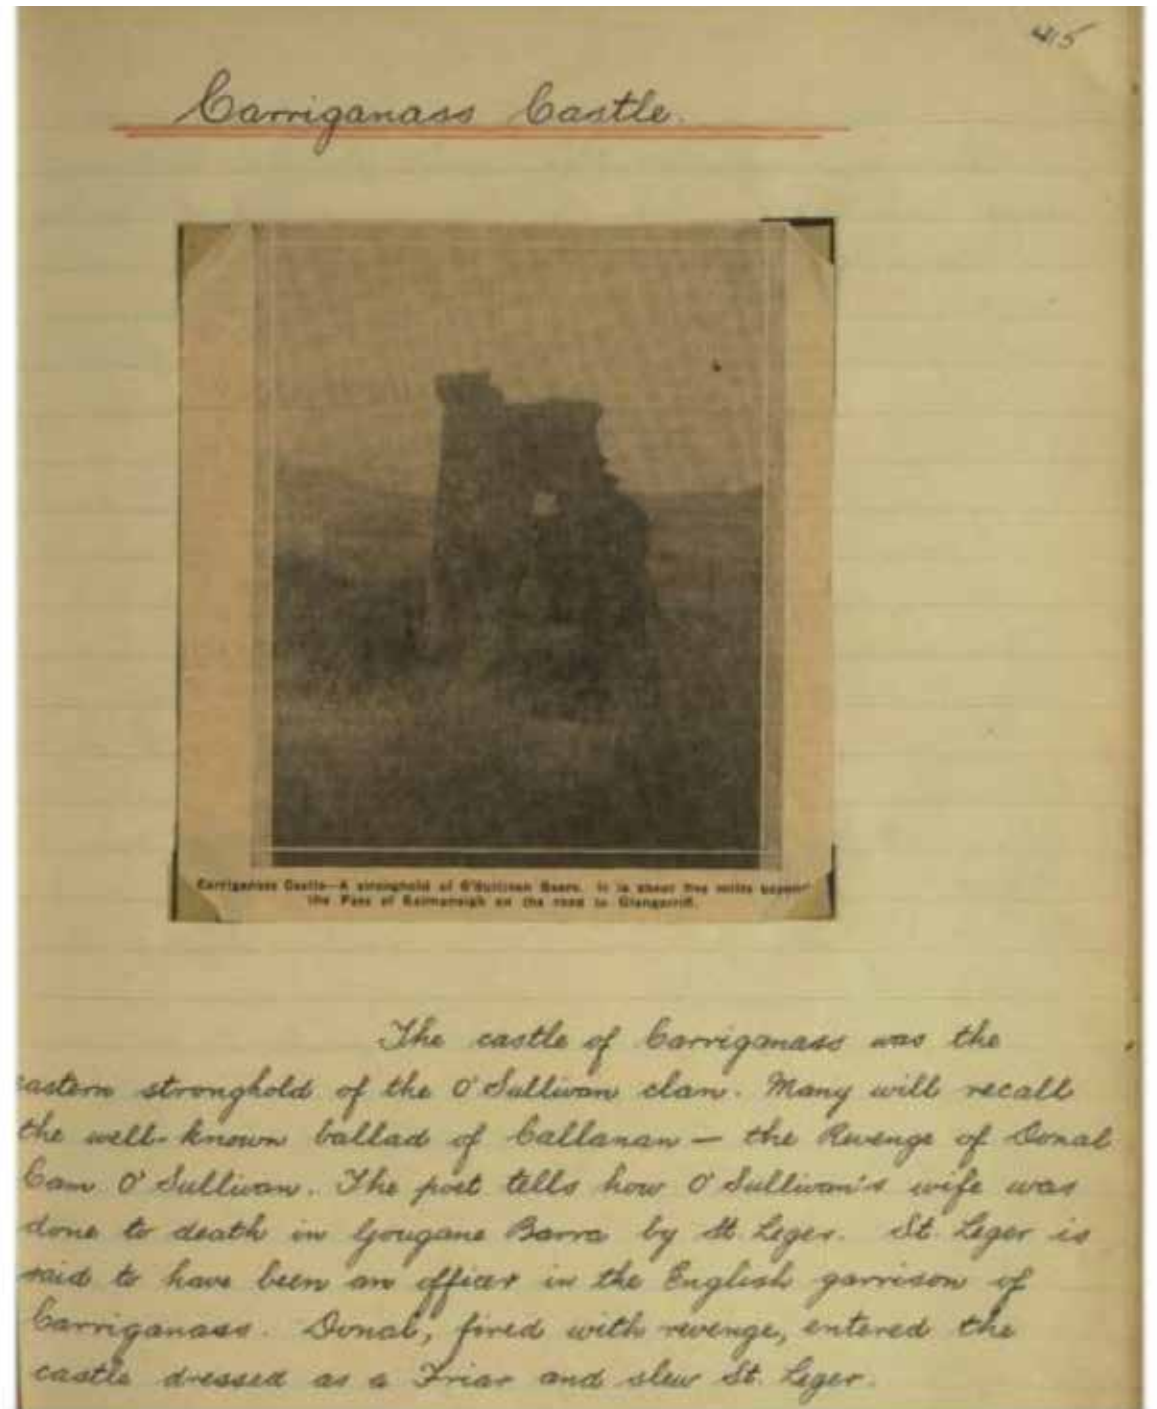 415
Carriganass Castle.
Carriganass Castle—A stronghold of O'Sullivan Beare. It is about five miles beyond
the Pass of Keimaneigh on the road to Glengarriff.
The castle of Carriganass was the
eastern stronghold of the O'Sullivan clan. Many will recall
the well-known ballad of Callanan — the Revenge of Donal
Cam O'Sullivan. The poet tells how O'Sullivan's wife was
done to death in Gougane Barra by St. Leger. St. Leger is
said to have been an officer in the English garrison of
Carriganass. Donal, fired with revenge, entered the
castle dressed as a Friar and slew St. Leger.